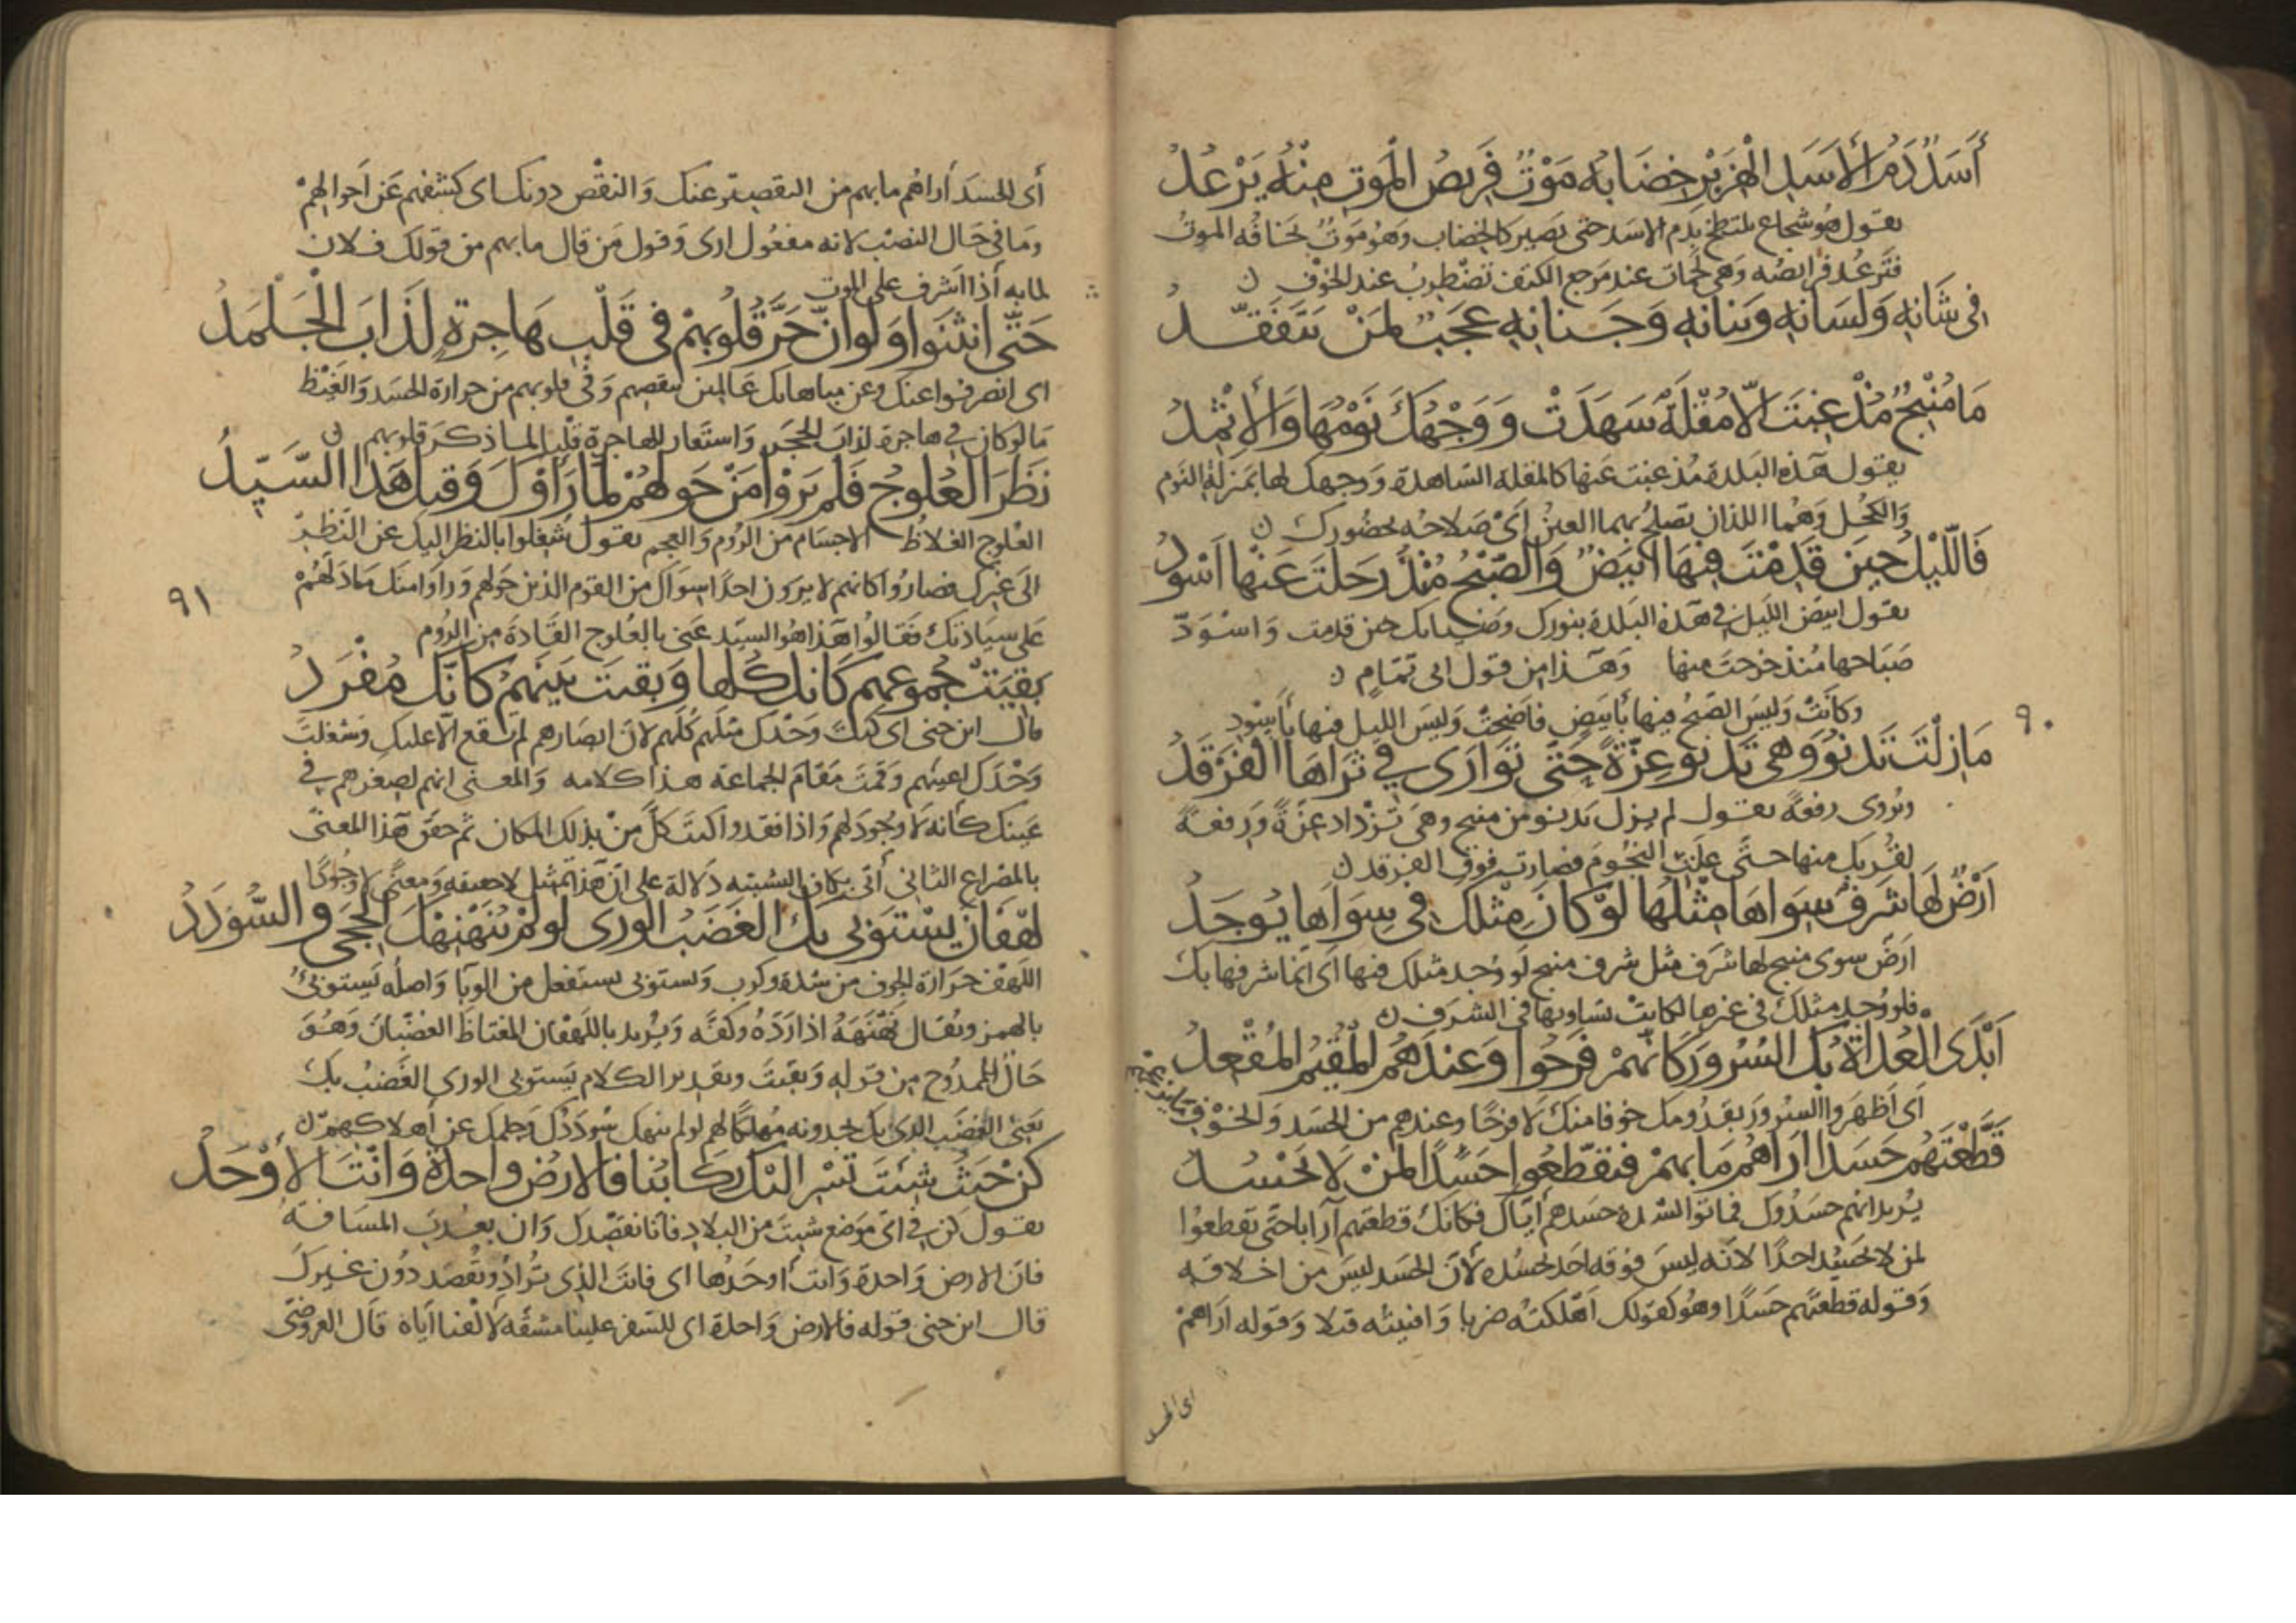 أَسَدٌ دَمُ الأَسَدِ الْهِزَبْرِ خِضَابُهُ مَوْتٌ فَرِيصُ الْمَوتِ مِنْهُ يَرْعُدُ
يقول هو شجاع يتلطخ بدم الاسد حتى يصير كالخضاب وهو موت يخافه الموت
فترعد فرائصه وهي لحمات عند مرجع الكتف تضطرب عند الخوف ن
في شَانِهِ وَلِسَانِهِ وَبَنَانِهِ وَجَنَانِهِ عَجَبٌ لِمَنْ يَتَفَقَّدُ
مَا مُنْبِجٌ مُذْ غِبْتَ إلّا مُقْلَةٌ سَهِدَتْ وَوَجْهُكَ نَوْمُهَا وَالإِثْمِدُ
يقول هذه البلدة مذ غبت عنها كالمقلة الساهدة ووجهك لها بمنزلة النوم
والكحل وهما اللذان تصلح بهما العين اي صلاحه بحضورك ن
فَاللَّيْلُ حِينَ قَدِمْتَ فِيهَا أَبْيَضٌ وَالصُّبْحُ مُنْذُ رَحَلْتَ عَنْهَا أَسْوَدُ
يقول ابيض الليل في هذه البلدة بنورك وضيائك حين قدمت واسودّ
صباحها منذ خرجت منها وهذا من قول ابي تمام ن
وكانت وليس الصبح فيها بأبيض فاضحت وليس الليل فيها بأسود
٩٠
مَا زِلْتَ تَدْنُو وَهِيَ تَدْنُو عِزَّةً حَتَّى تَوَارَى فِي ثَرَاهَا الْفَرْقَدُ
ويروى رفعة يقول لم يزل يدنو من منبج وهي تزداد عزة ورفعة
لقربك منها حتى علت النجوم فصارت فوق الفرقد ن
أَرْضٌ لَهَا شَرَفٌ سِوَاهَا مِثْلُهَا لَوْ كَانَ مِثْلُكَ فِي سِوَاهَا يُوجَدُ
ارض سوى منبج لها شرف مثل شرف منبج لو وجد مثلك فيها اي انما شرفها بك
فلو وجد مثلك في غيرها لكانت تساويها في الشرف ن
أَبْدَى الْعُدَاةُ بِكَ السُّرُورَ كَأَنَّهُمْ فَرِحُوا وَعِنْدَهُمُ الْمُقِيمُ الْمُقْعِدُ
اي اظهروا السرور بقدومك خوفا منك لا فرحا وعندهم من الحسد والخوف
قَطَّعْتَهُمْ حَسَدًا أَرَاهُمْ مَا بِهِمْ فَتَقَطَّعُوا حَسَدًا لِمَنْ لَا يَحْسُدُ
يريد انهم حسدوك فماتوا لشدة حسدهم اياك فكانك قطعتهم آرابا حتى تقطعوا
لمن لا يحسد احدا لانه ليس فوقه احد يحسده لان الحسد ليس من اخلاقه
وقوله قطعتهم حسدا وهو كقولك اهلكته ضربا وافنيته قتلا وقوله اراهم
اي الحسد
أي الحسد أراهم ما بهم من التقصير عنك والنقص دونك اي كشفهم عن احوالهم
وما في حال النصب لانه مفعول ارى وقول من قال ما بهم من قولك فلان
لما به أذا اشرف على الموت
حَتَّى انْثَنَوا وَلَوْ أَنَّ حَرَّ قُلُوبِهِمْ فِي قَلْبِ هَاجِرَةٍ لَذَابَ الْجَلْمَدُ
اي انصرفوا عنك وعن مباهاتك عالمين بنقصهم وفي قلوبهم من حرارة الحسد والغيظ
ما لو كان في هاجرة لذاب الحجر واستعار للهاجرة قلبا لما ذكر قلوبهم ن
نَظَرَ الْعُلُوجُ فَلَمْ يَرَوْا مَنْ حَولَهُمْ لَمَّا رَأَوْكَ وَقِيلَ هَذَا السَّيِّدُ
العلوج الغلاظ الاجسام من الروم والعجم يقول شغلوا بالنظر اليك عن النظر
الى غيرك فصاروا كانهم لا يرون احدا سواك من القوم الذين حولهم وراوا منك ما دلهم
٩١
على سيادتك فقالوا هذا هو السيد عنى بالعلوج القادة من الروم
بَقِيَتْ جُمُوعُهُم كَأنَّكَ كُلُّهَا وَبَقِيتَ بَيْنَهُمُ كَأَنَّكَ مُفْرَدُ
قال ابن جني اي كنت وحدك مثلهم كلهم لان ابصارهم لم تقع الا عليك وشغلت
وحدك اعينهم وقمت مقام الجماعة هذا كلامه والمعنى انهم لصغرهم في
عينك كأنه لا وجود لهم واذا فقدوا كنت كل من بذلك المكان ثم حقق هذا المعنى
بالمصراع الثاني أتى بكاف التشبيه دلالة على ان هذا تمثيل لا حقيقة ومعنى لا وجودا
لَهْفَانَ يَسْتَوْبِي بِكَ الْغَضَبُ الْوَرَى لَو لَمْ يُنَهْنِهْكَ الْحِجَى وَالسُّوْدَدُ
اللهف حرارة الجوف من شدة وكرب ويستوبى يستفعل من الوبا واصله يستوبئ
بالهمز ويقال نهنهه اذا رده وكفّه ويريد باللهفان المغتاظ الغضبان وهو
حال للممدوح من قوله وبقيت وتقدير الكلام يستوبى الورى الغضب بك
يعني الغضب الذي بك يجدونه مهلكا لهم لو لم ينهك سوددك وحلمك عن اهلاكهم ن
كُنْ حَيْثُ شِئتَ تَسْرِ الَيْكَ رِكَابُنَا فَالارْضُ وَاحِدَةٌ وَأَنْتَ الأَوْحَدُ
يقول كن في اي موضع شيت من البلاد فانا نقصدك وان بعدت المسافة
فان الارض واحدة وانت أوحدها اي فانت الذي تُراد وتقصد دون غيرك
قال ابن جني قوله فالارض واحدة اي للسفر علينا مشقه لا لفنا اياه قال العروضي